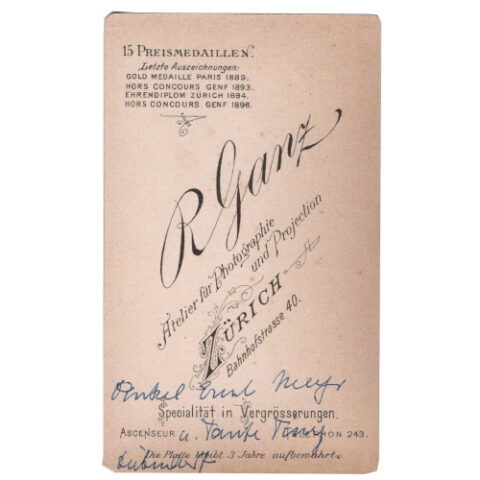 15 PREISMEDAILLEN.
Letzte Auszeichnungen:
GOLD MEDAILLE PARIS 1889.
HORS CONCOURS GENF 1893.
EHRENDIPLOM ZÜRICH 1894.
HORS CONCOURS GENF 1896.
R Ganz
Atelier für Photographie
und Projection
ZÜRICH
Bahnhofstrasse 40.
Onkel Ernst Meyer
Specialität in Vergrösserungen.
ASCENSEUR TELEPHON 243.
u. Tante Finy
Die Platte bleibt 3 Jahre aufbewahrt.